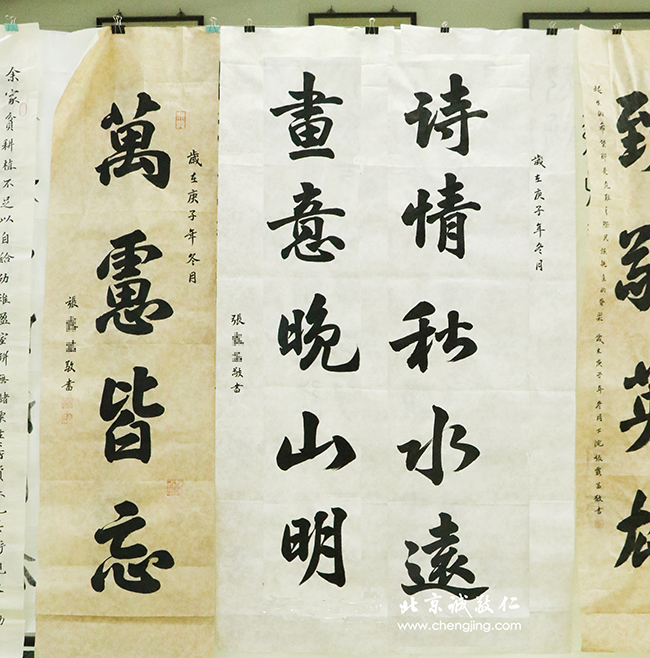 致敬英雄
歲在庚子年冬月
詩情秋水遠
畫意晚山明
張
敬書
歲在庚子年冬月
萬慮皆忘
張
敬書
余家貧耕植不足以自給幼稚盈室缾無儲粟生生所資未見其
北京诚敬仁
www.chengjing.com